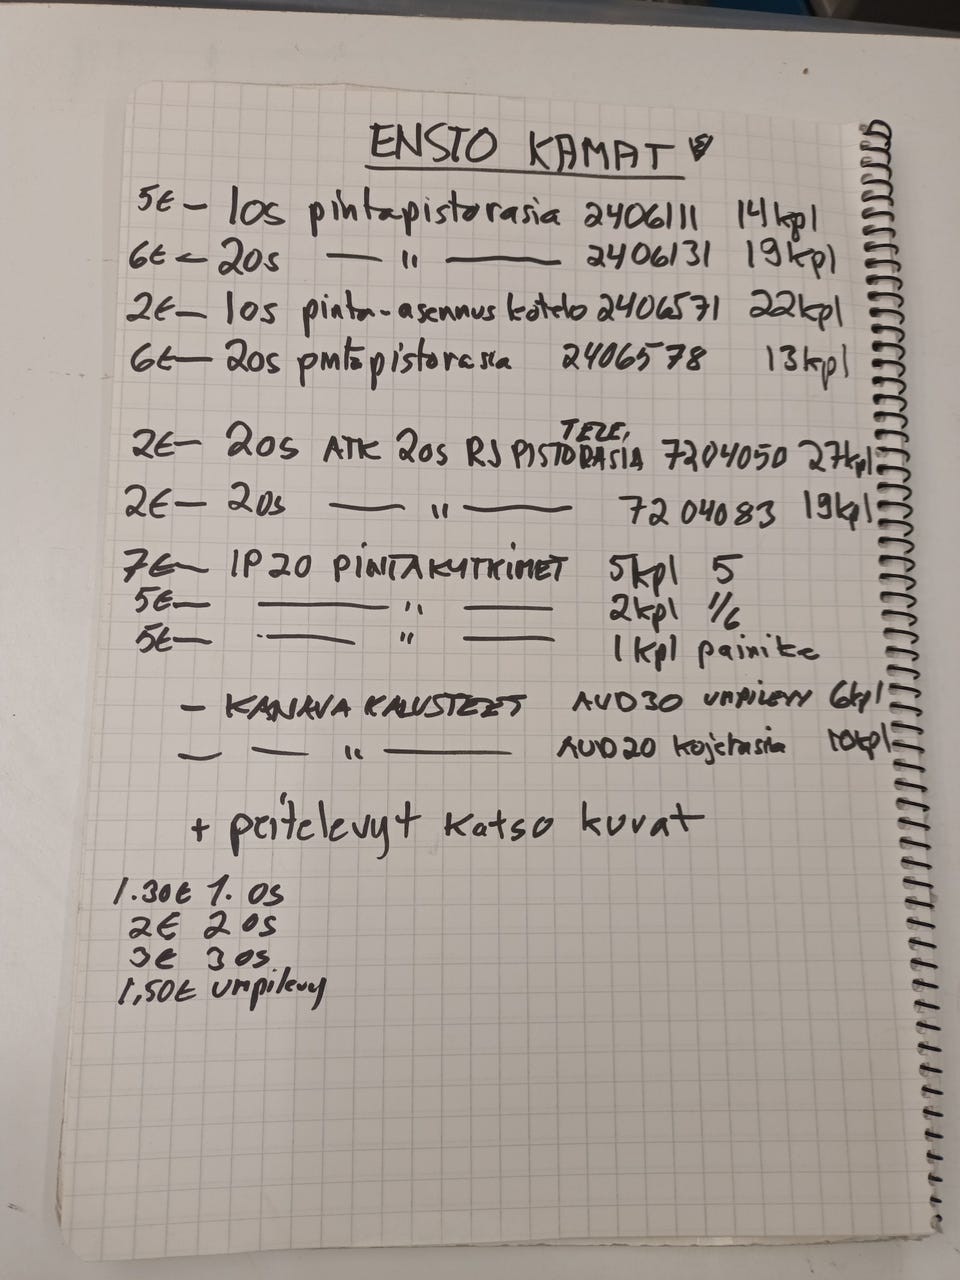 ENSTO KAMAT
5€ – 1os pintapistorasia 2406111 14kpl
6€ – 2os — " — 2406131 19kpl
2€ – 1os pinta-asennus kotelo 2406571 22kpl
6€ – 2os pintapistorasia 2406578 13kpl
TELE,
2€ – 2os ATK 2os RJ PISTORASIA 7204050 27kpl
2€ – 2os — " — 7204083 19kpl
7€ – IP20 PINTAKYTKIMET 5kpl 5
5€ – — " — 2kpl 1/6
5€ – — " — 1kpl painike
– KANAVA KALUSTEET AUD30 umpilevy 6kpl
– — " — AUD20 kojerasia 10kpl
+ peitelevyt katso kuvat
1.30€ 1. os
2€ 2 os
3€ 3 os
1,50€ umpilevy